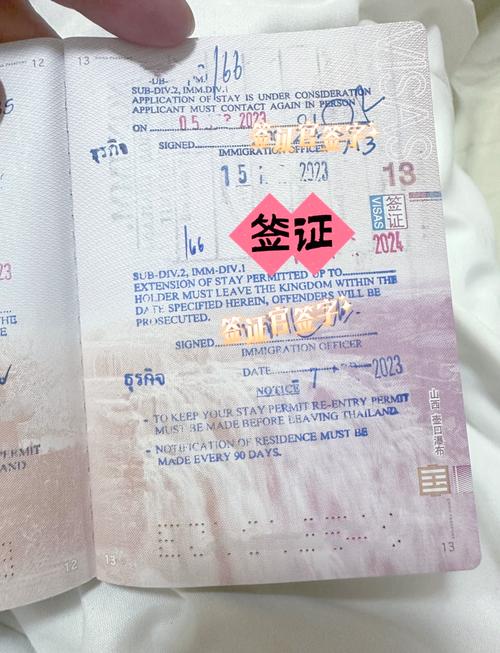 12
13
VISAS
166
SUB-DIV.2, IMM.DIV.1
APPLICATION OF STAY IS UNDER CONSIDERATION
APPLICANT MUST CONTACT AGAIN IN PERSON
ON 05 2023
签证官签字
ธุรกิจ
SIGNED
IMMIGRATION OFFICER
15 2023
13
VISAS
签证
签证
166
2024
SUB-DIV.2, IMM-DIV.1
EXTENSION OF STAY PERMITTED UP TO
HOLDER MUST LEAVE THE KINGDOM WITHIN THE
DATE SPECIFIED HEREIN, OFFENDERS WILL BE
PROSECUTED.
签证官签字
SIGNED
IMMIGRATION OFFICER
ธุรกิจ
DATE 2023
NOTICE
- TO KEEP YOUR STAY PERMIT RE-ENTRY PERMIT
MUST BE MADE BEFORE LEAVING THAILAND.
- NOTIFICATION OF RESIDENCE MUST BE
MADE EVERY 90 DAYS.
山西·壶口瀑布
PERMIT
AND
12
13
13